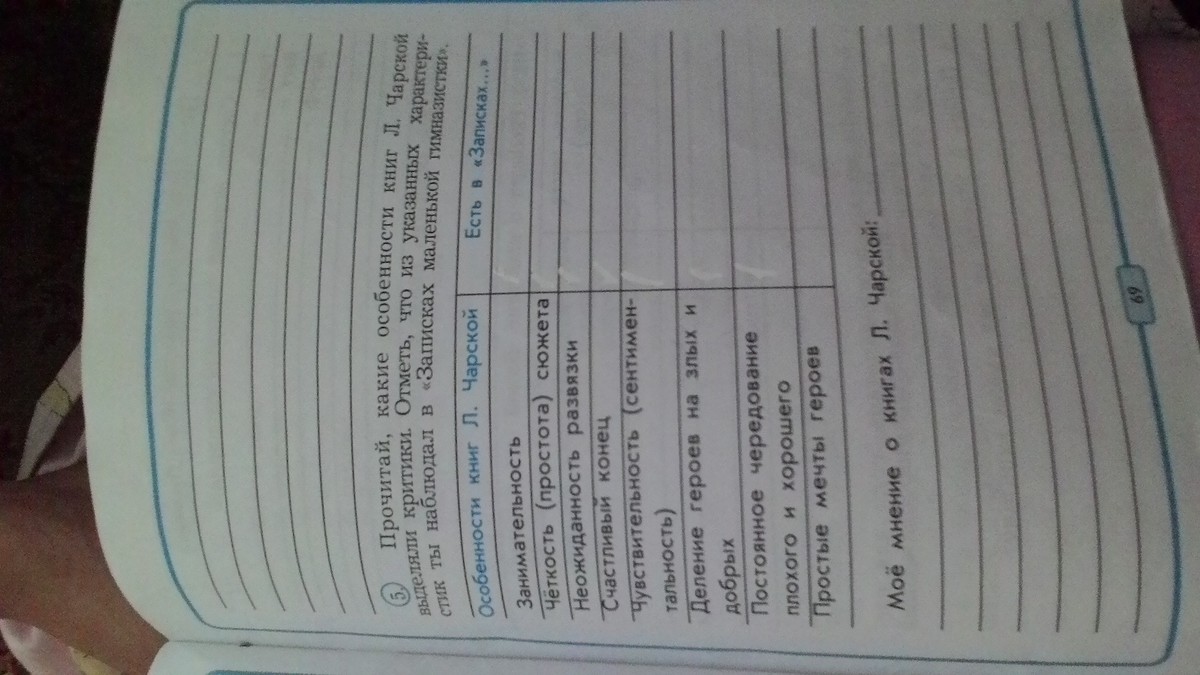 5. Прочитай, какие особенности книг Л. Чарской
выделяли критики. Отметь, что из указанных характери-
стик ты наблюдал в «Записках маленькой гимназистки».
Особенности книг Л. Чарской Есть в «Записках...»
Занимательность
Чёткость (простота) сюжета
Неожиданность развязки
Счастливый конец
Чувствительность (сентимен-
тальность)
Деление героев на злых и
добрых
Постоянное чередование
плохого и хорошего
Простые мечты героев
Моё мнение о книгах Л. Чарской:
69